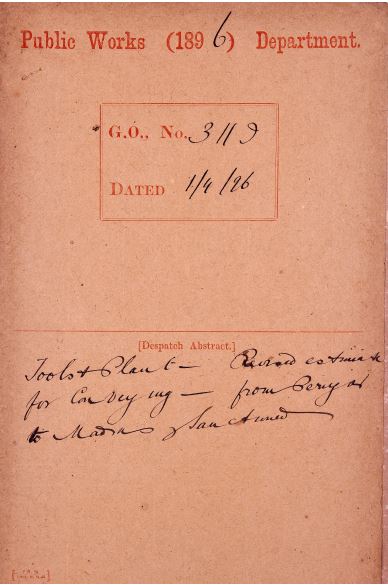 Public Works (1896) Department.
G.O., No. 319
DATED 1/4/96
[Despatch Abstract.]
Tools & Plant — Revised estimate
for Conveying — from Periyar
to Madras Sanctioned